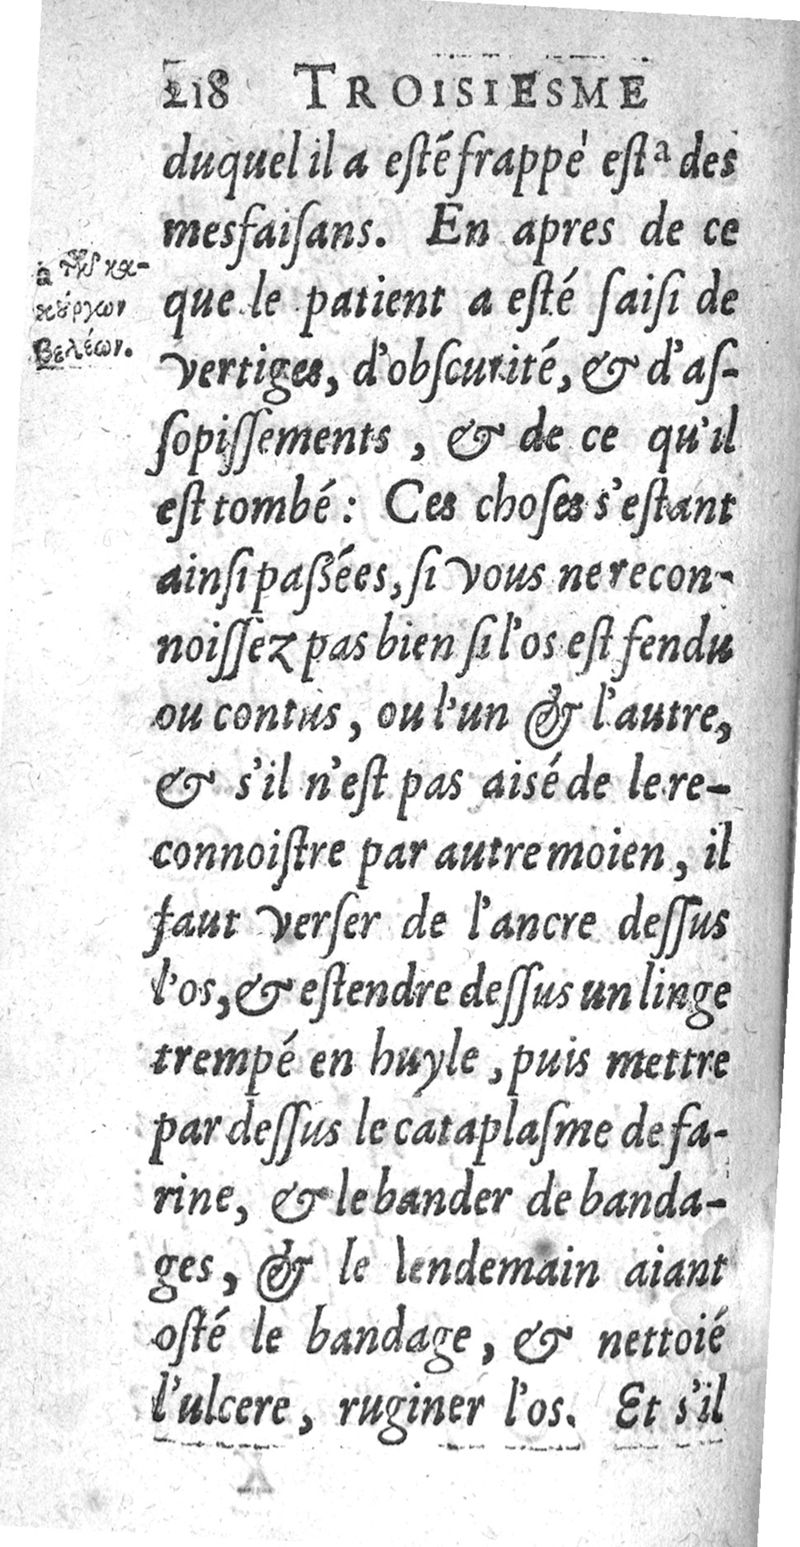 218 TROISIESME
duquel il a esté frappé est ᵃ des
mesfaiſans. En apres de ce
que le patient a eſté ſaiſi de
vertiges, d'obſcurité, & d'aſ-
ſopiſſements, & de ce qu'il
eſt tombé : Ces choſes s'eſtant
ainſi paſſées, ſi vous ne recon-
noiſſez pas bien ſi l'os eſt fendu
ou contus, ou l'un & l'autre,
& s'il n'eſt pas aisé de le re-
connoiſtre par autre moien, il
faut verſer de l'ancre deſſus
l'os, & eſtendre deſſus un linge
trempé en huyle, puis mettre
par deſſus le cataplaſme de fa-
rine, & le bander de banda-
ges, & le lendemain aiant
oſté le bandage, & nettoié
l'ulcere, ruginer l'os. Et s'il
a τῶν κα-
κούργων
βελέων.